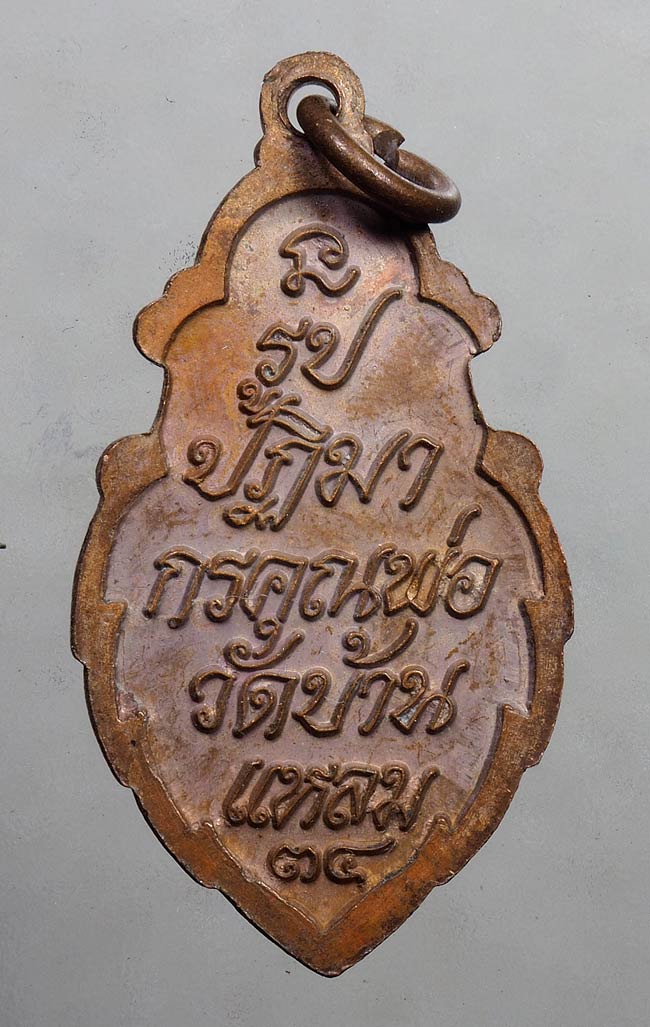 รูป
ปฏิมา
กรคุณพ่อ
วัดบ้าน
แหลม
๓๔